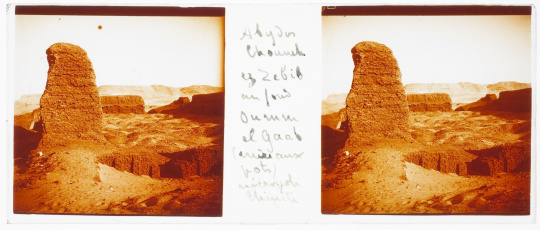 Abydos
Chouneh
ez Zebib
au fond
Oumm
el Gaab
(mère aux
pots)
nécropole
thinite